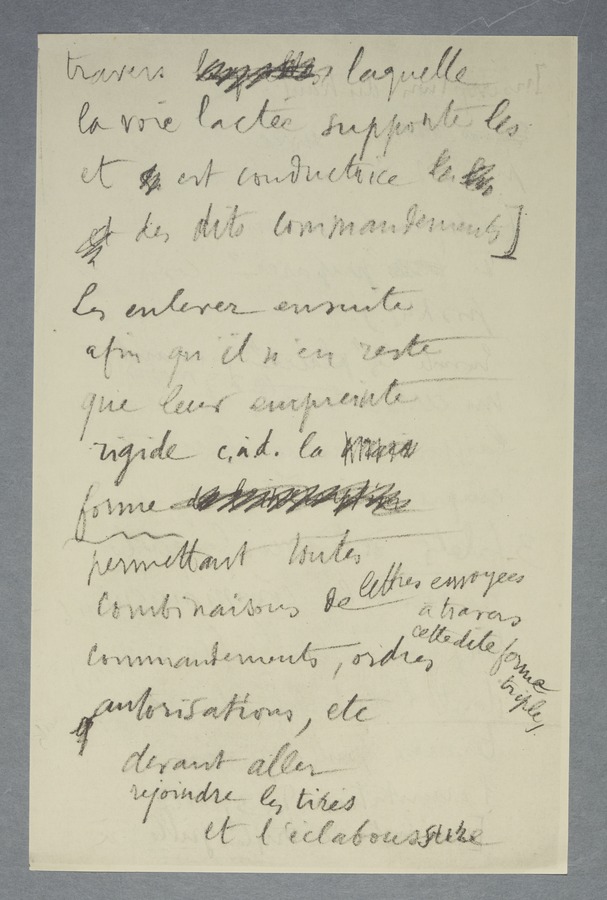 travers laquelle
la voie lactée supporte les
et est conductrice
des dits commandements]
Les enlever ensuite
afin qu'il n'en reste
que leur empreinte
rigide c.à.d. la
forme
permettant toutes
combinaisons de lettres envoyées
à travers
cette dite forme
triple,
commandements, ordres
autorisations, etc
devant aller
rejoindre les tirés
et l'éclaboussure